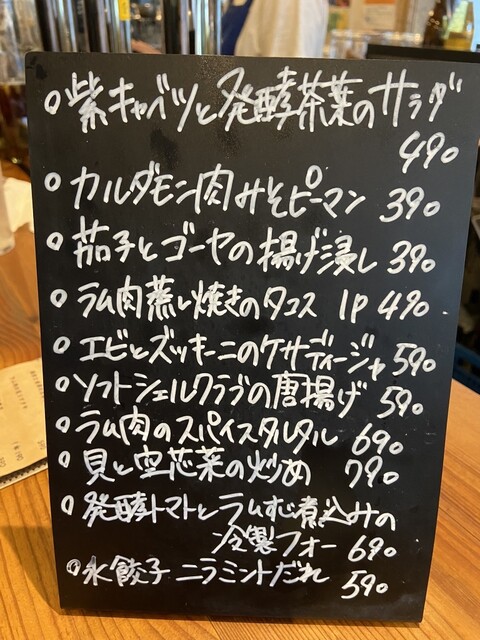 ○紫キャベツと発酵茶葉のサラダ
490
○カルダモン肉みそピーマン 390
○茄子とゴーヤの揚げ浸し 390
○ラム肉蒸し焼きのタコス 1P 490
○エビとズッキーニのケサディージャ 590
○ソフトシェルクラブの唐揚げ 590
○ラム肉のスパイスタルタル 690
○貝と空芯菜の炒め 790
○発酵トマトとラムすじ煮込みの
冷製フォー 690
○水餃子 ニラミントだれ 590